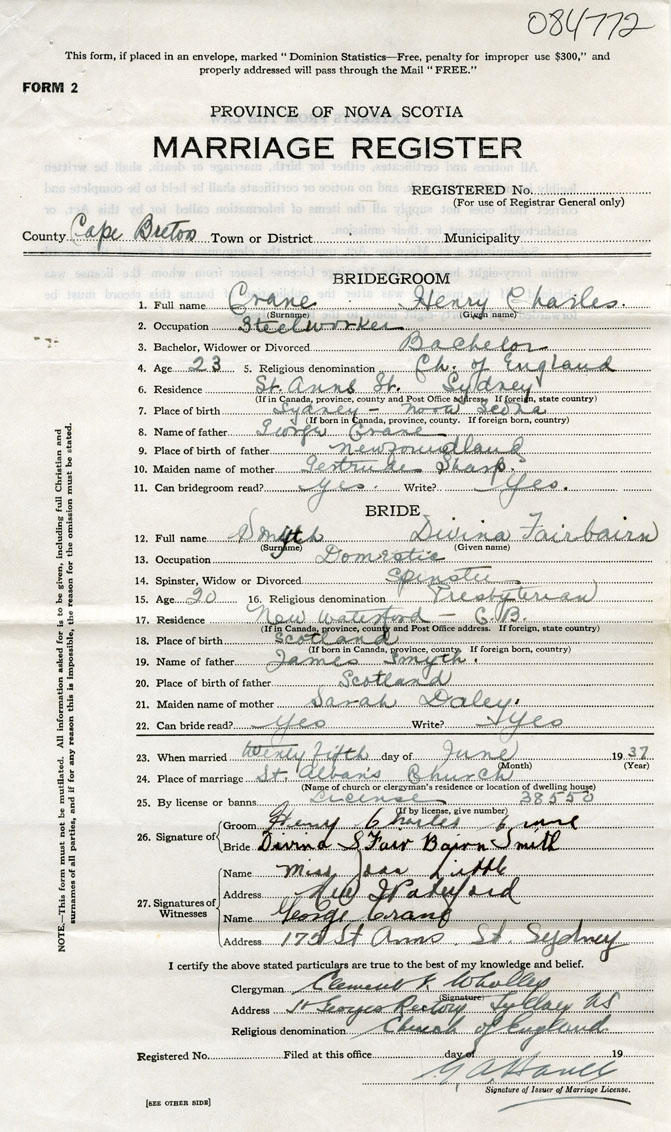 084772
This form, if placed in an envelope, marked "Dominion Statistics—Free, penalty for improper use $300," and
properly addressed will pass through the Mail "FREE."
FORM 2
PROVINCE OF NOVA SCOTIA
MARRIAGE REGISTER
REGISTERED No.
(For use of Registrar General only)
County Cape Breton Town or District Municipality
BRIDEGROOM
1. Full name Crane Henry Charles.
(Surname) (Given name)
2. Occupation Steelworker
3. Bachelor, Widower or Divorced Bachelor
4. Age 23 5. Religious denomination Ch. of England
6. Residence St. Anns St. Sydney
(If in Canada, province, county and Post Office address. If foreign, state country)
7. Place of birth Sydney – Nova Scotia
(If born in Canada, province, county. If foreign born, country)
8. Name of father George Crane
9. Place of birth of father Newfoundland
10. Maiden name of mother Gertrude Sharp.
11. Can bridegroom read? yes. Write? Yes.
BRIDE
12. Full name Smyth Divina Fairbairn
(Surname) (Given name)
13. Occupation Domestic
14. Spinster, Widow or Divorced Spinster
15. Age 20 16. Religious denomination Presbyterian
17. Residence New Waterford – C.B.
(If in Canada, province, county and Post Office address. If foreign, state country)
18. Place of birth Scotland
(If born in Canada, province, county. If foreign born, country)
19. Name of father James Smyth.
20. Place of birth of father Scotland
21. Maiden name of mother Sarah Daley.
22. Can bride read? Yes Write? Yes
23. When married twenty fifth day of June 1937
(Month) (Year)
24. Place of marriage St. Alban's Church
(Name of church or clergyman's residence or location of dwelling house)
25. By license or banns License 38550
(If by license, give number)
26. Signature of Groom Henry Charles Crane
Bride Divina S Fair Bairn Smith
27. Signatures of Witnesses
Name Miss Joan Little
Address New Waterford
Name George Crane
Address 175 St Anns. St. Sydney
I certify the above stated particulars are true to the best of my knowledge and belief.
Clergyman Clement
(Signature)
Address St Georges Rectory Sydney NS
Religious denomination Church of England
Registered No. Filed at this office day of 19
Signature of Issuer of Marriage License.
[SEE OTHER SIDE]
NOTE.—This form must not be mutilated. All information asked for is to be given, including full Christian and
surnames of all parties, and if for any reason this is impossible, the reason for the omission must be stated.